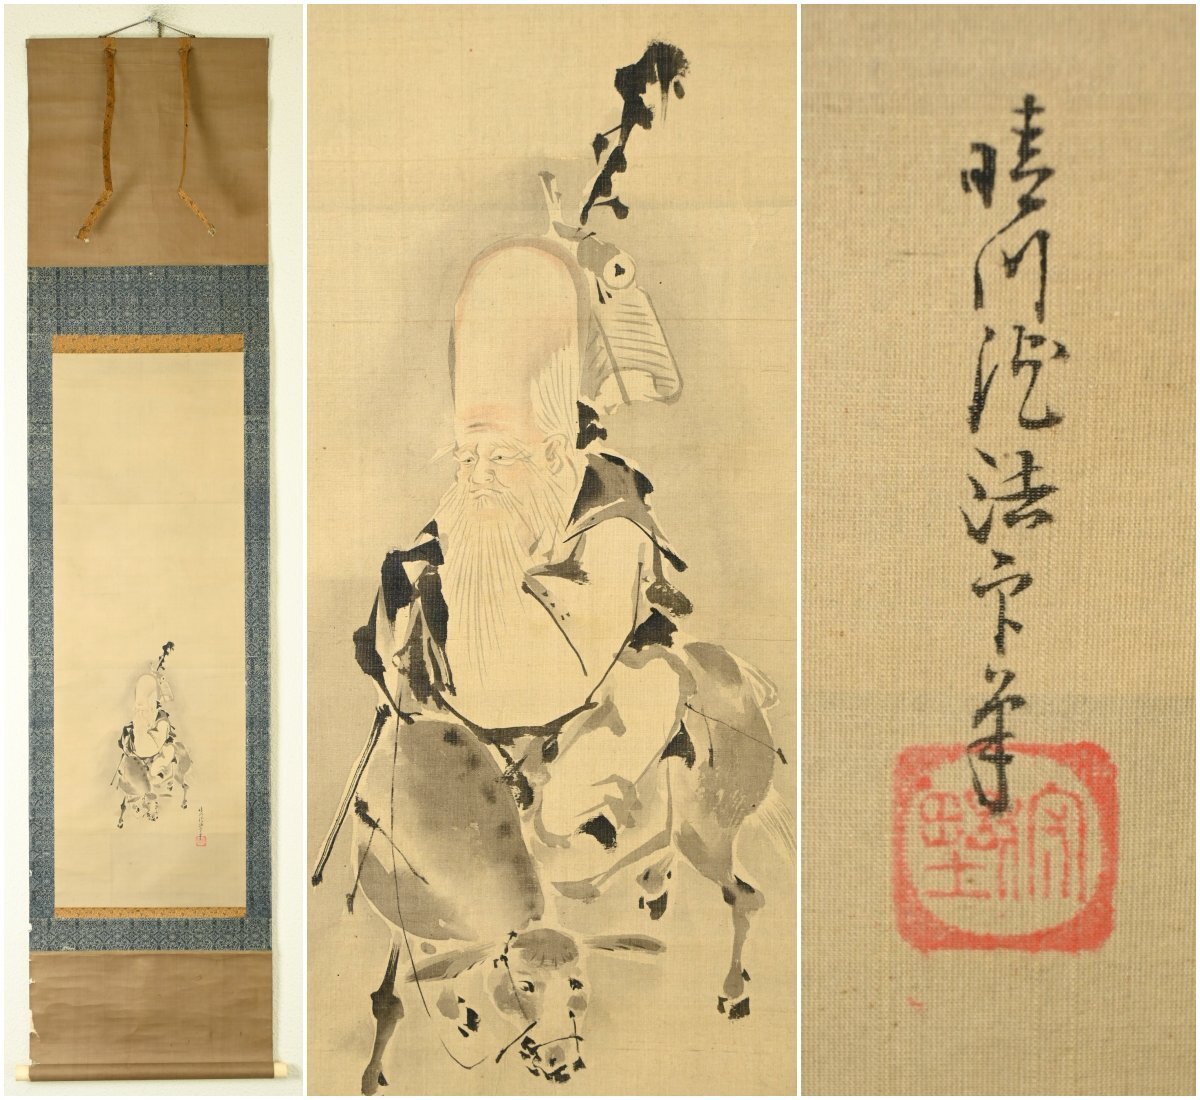 晴川院法印筆